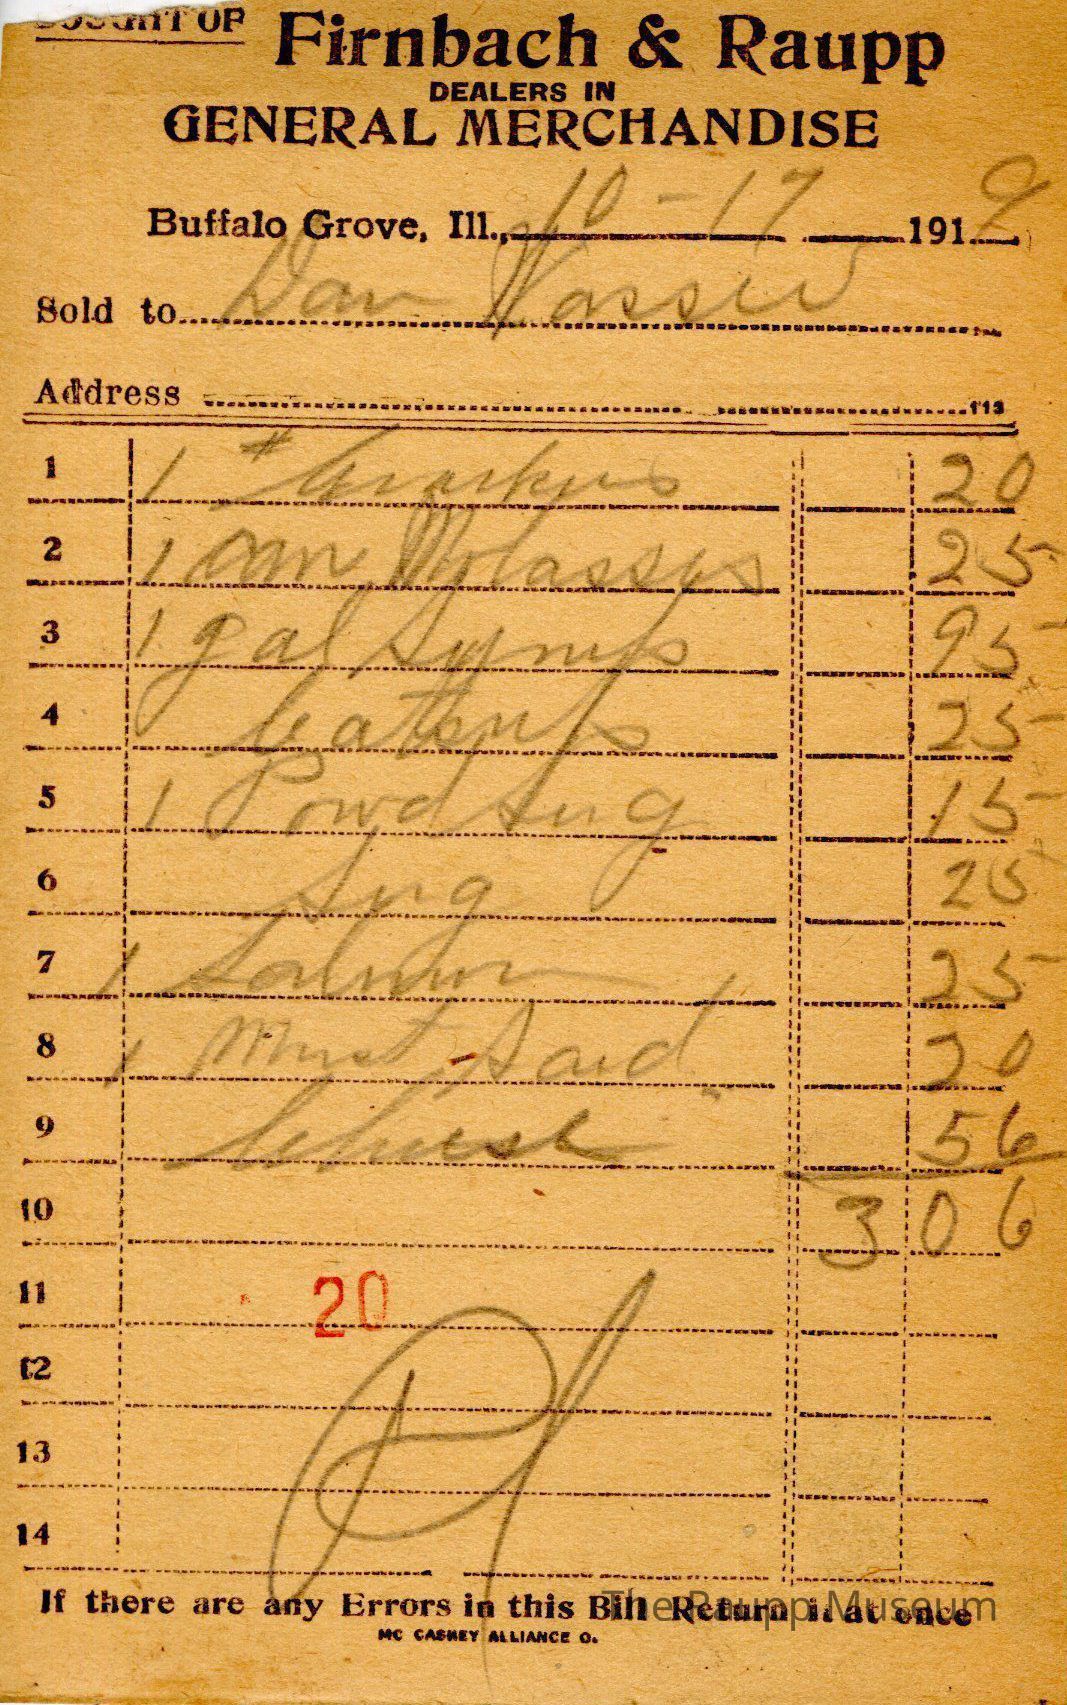 BOUGHT OF Firnbach & Raupp
DEALERS IN
GENERAL MERCHANDISE
Buffalo Grove, Ill., 10-17 1919
Sold to Dan
Address 113
1 1 # 20
2 1 can Molasses 25
3 1 gal Syrup 95
4 Catsup 25
5 1 Powd Sug 15
6 Sug 25
7 1 Salmon 25
8 1 Must Sard 20
9 56
10 3 06
11 20
12
13
14
If there are any Errors in this Bill Return it at once
MC CASKEY ALLIANCE O.
The Raupp Museum